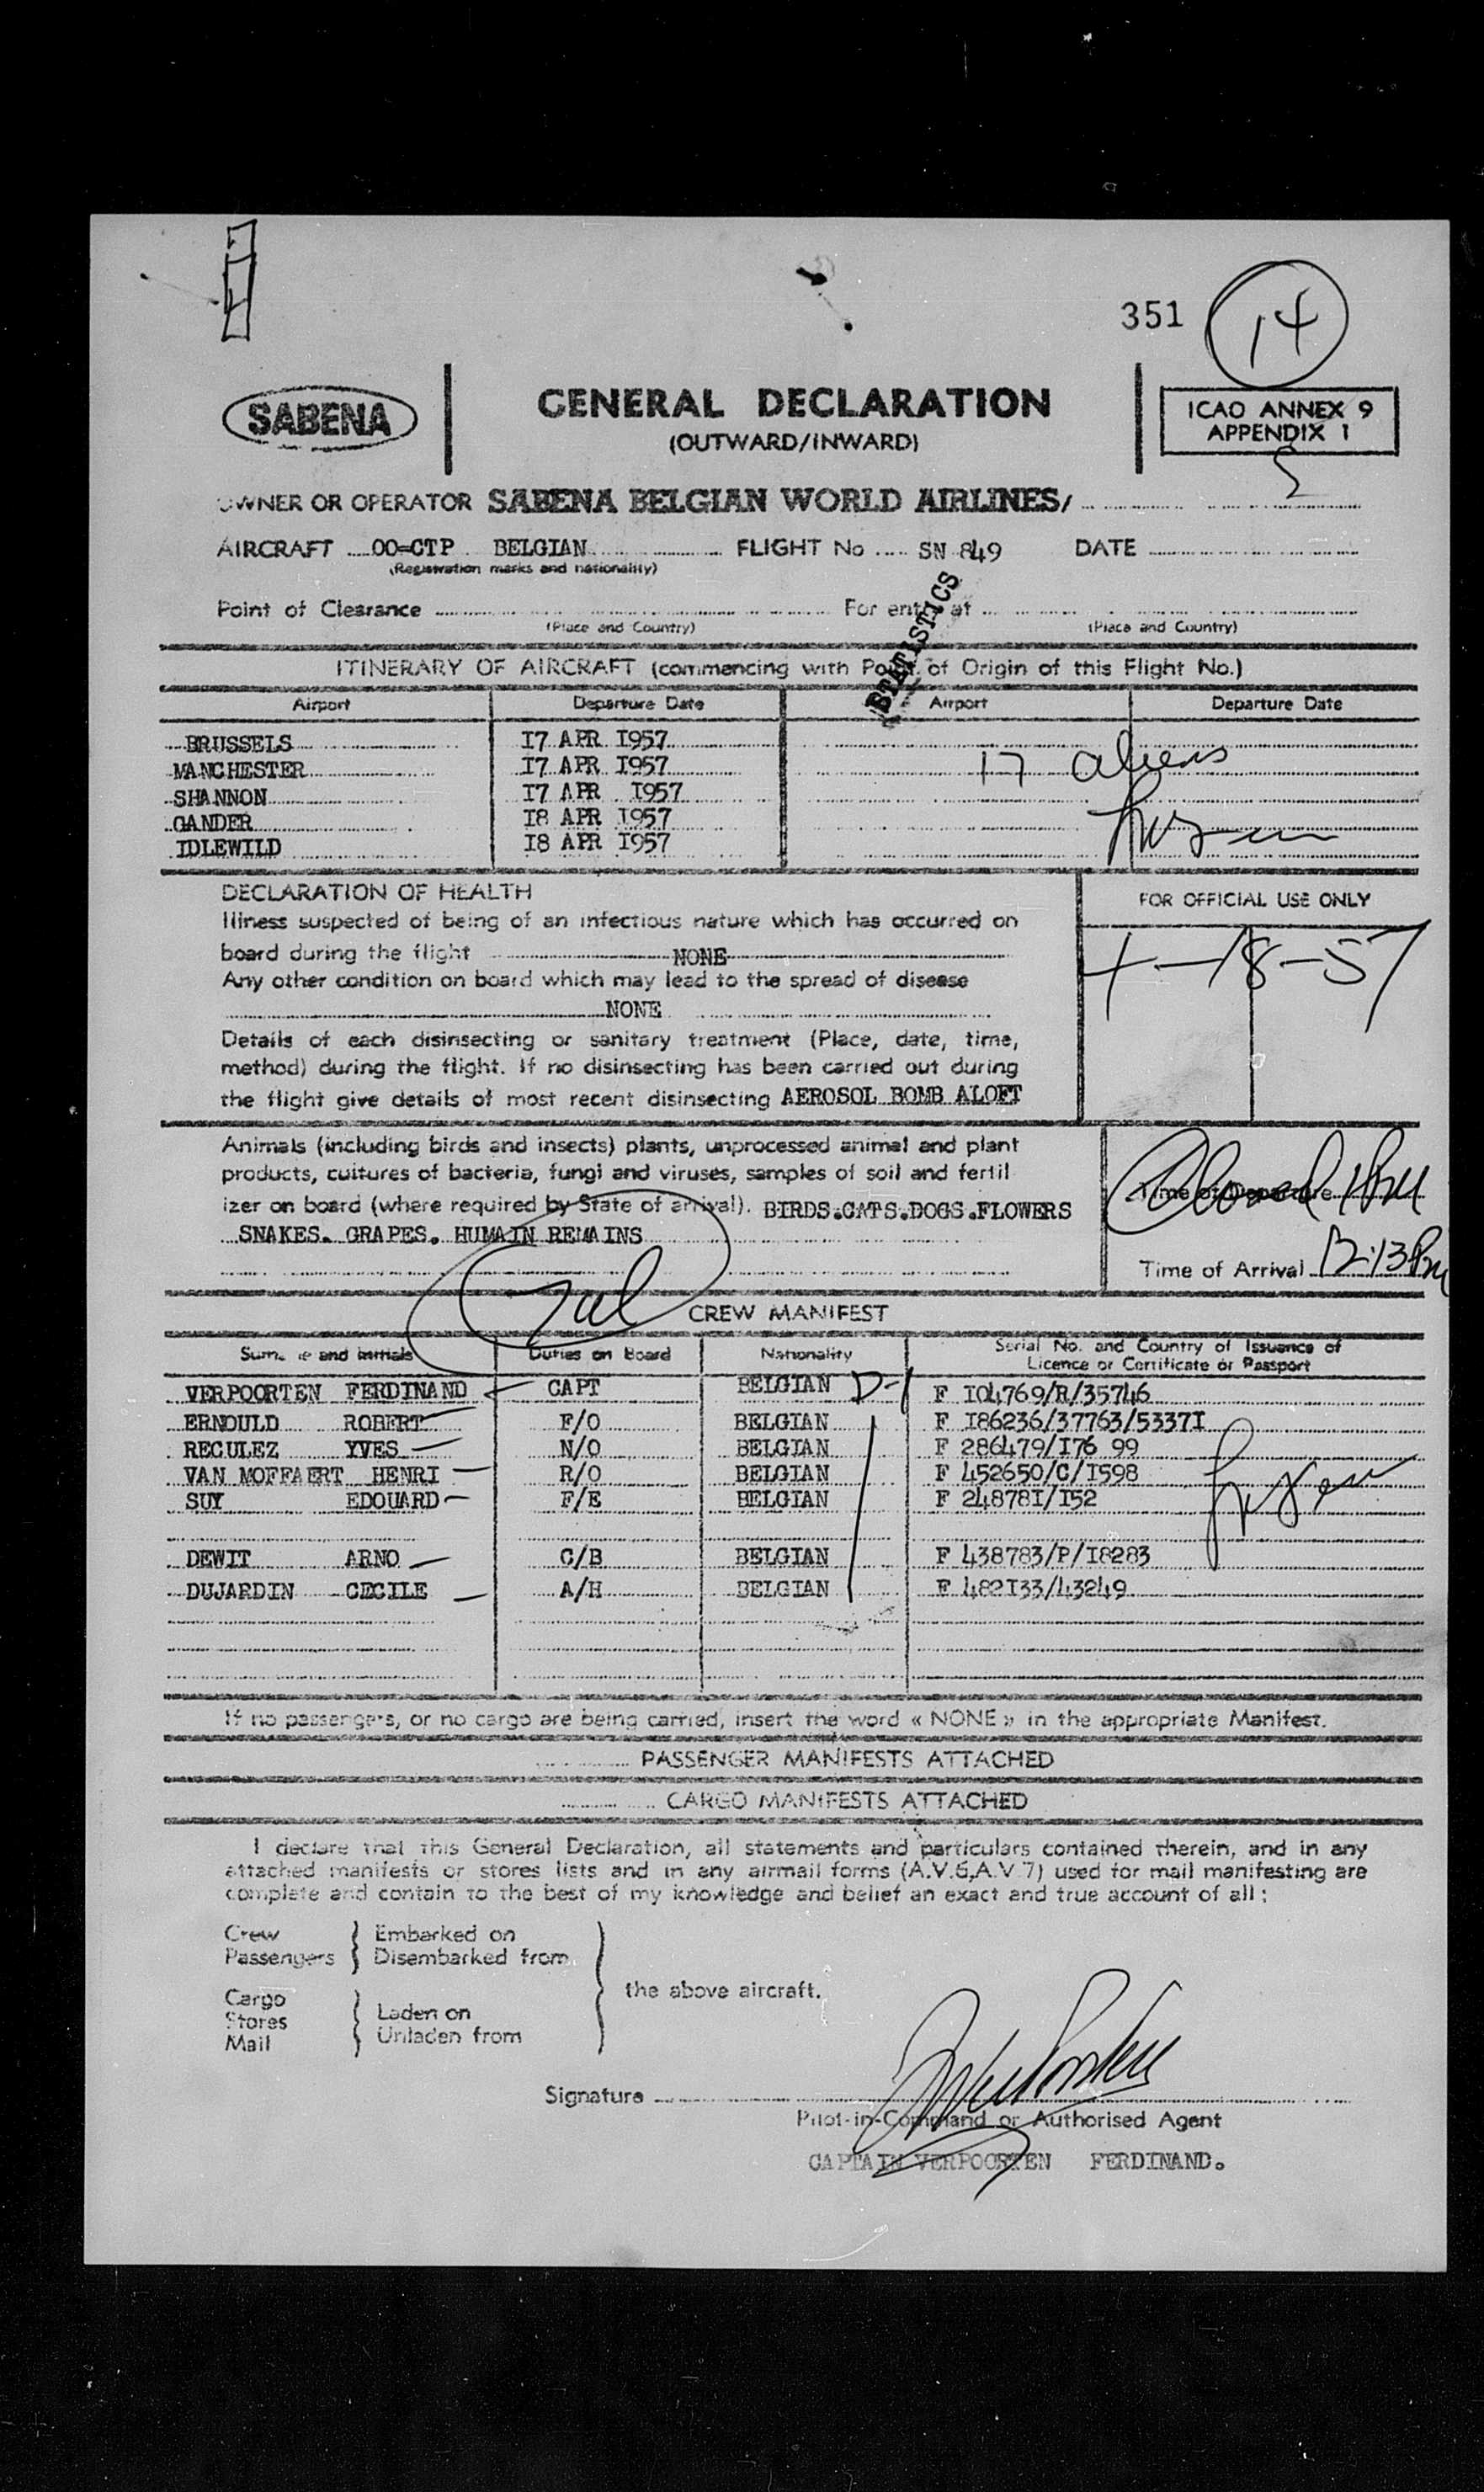 351 14
SABENA
GENERAL DECLARATION
(OUTWARD/INWARD)
ICAO ANNEX 9
APPENDIX 1
OWNER OR OPERATOR SABENA BELGIAN WORLD AIRLINES/
AIRCRAFT OO-CTP BELGIAN FLIGHT No SN 849 DATE
(Registration marks and nationality)
Point of Clearance For entry at
(Place and Country) (Place and Country)
STATISTICS
ITINERARY OF AIRCRAFT (commencing with Point of Origin of this Flight No.)
Airport Departure Date Airport Departure Date
BRUSSELS I7 APR I957
MANCHESTER I7 APR I957 17 aliens
SHANNON I7 APR I957
GANDER I8 APR I957
IDLEWILD I8 APR I957
DECLARATION OF HEALTH
FOR OFFICIAL USE ONLY
Illness suspected of being of an infectious nature which has occurred on
board during the flight NONE
4-18-57
Any other condition on board which may lead to the spread of disease
NONE
Details of each disinsecting or sanitary treatment (Place, date, time,
method) during the flight. If no disinsecting has been carried out during
the flight give details of most recent disinsecting AEROSOL BOMB ALOFT
Animals (including birds and insects) plants, unprocessed animal and plant
products, cultures of bacteria, fungi and viruses, samples of soil and fertil
izer on board (where required by State of arrival). BIRDS.CATS.DOGS.FLOWERS
SNAKES. GRAPES. HUMAIN REMAINS
Time of Departure
Time of Arrival 12:13 PM
CREW MANIFEST
Surname and initials Duties on Board Nationality Serial No. and Country of Issuance of
Licence or Certificate or Passport
VERPOORTEN FERDINAND CAPT BELGIAN D-1 F I04769/R/35746
ERNOULD ROBERT F/O BELGIAN F I86236/37763/5337I
RECULEZ YVES N/O BELGIAN F 286479/I76 99
VAN MOFFAERT HENRI R/O BELGIAN F 452650/C/I598
SUY EDOUARD F/E BELGIAN F 24878I/I52
DEWIT ARNO C/B BELGIAN F 438783/P/I8283
DUJARDIN CECILE A/H BELGIAN F 482I33/43249
If no passengers, or no cargo are being carried, insert the word « NONE » in the appropriate Manifest.
PASSENGER MANIFESTS ATTACHED
CARGO MANIFESTS ATTACHED
I declare that this General Declaration, all statements and particulars contained therein, and in any
attached manifests or stores lists and in any airmail forms (A.V.6,A.V 7) used for mail manifesting are
complete and contain to the best of my knowledge and belief an exact and true account of all :
Crew Embarked on
Passengers Disembarked from
the above aircraft.
Cargo
Stores Laden on
Mail Unladen from
Signature
Pilot-in-Command or Authorised Agent
CAPTAIN VERPOORTEN FERDINAND.